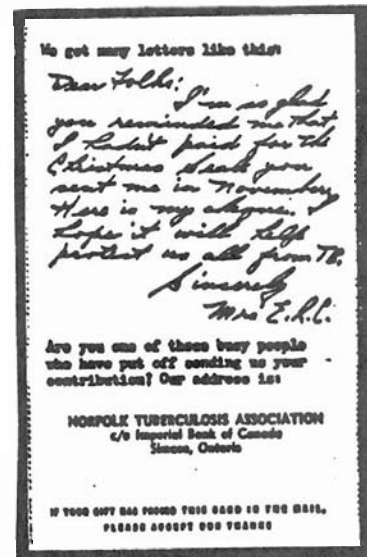 We get many letters like this:
Dear Folks:
I'm so glad
you reminded me that
I hadn't paid for the
Christmas Seals you
sent me in November.
Here is my cheque. I
hope it will help
protect us all from TB.
Sincerely
Mrs E.R.C.
Are you one of these busy people
who have put off sending us your
contribution? Our address is:
NORFOLK TUBERCULOSIS ASSOCIATION
c/o Imperial Bank of Canada
Simcoe, Ontario
IF YOUR GIFT HAS PASSED THIS CARD IN THE MAIL,
PLEASE ACCEPT OUR THANKS